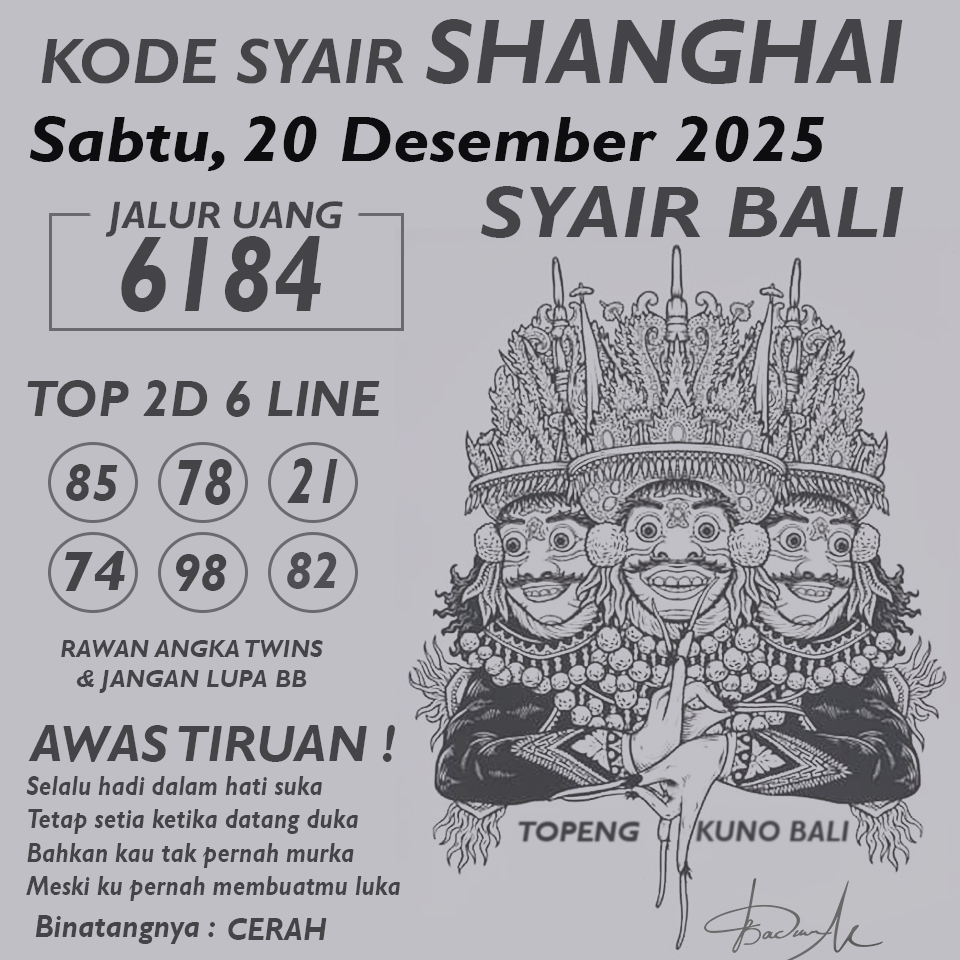 KODE SYAIR SHANGHAI
Sabtu, 20 Desember 2025
SYAIR BALI
JALUR UANG
6184
TOP 2D 6 LINE
85 78 21
74 98 82
RAWAN ANGKA TWINS
& JANGAN LUPA BB
AWAS TIRUAN !
Selalu hadi dalam hati suka
Tetap setia ketika datang duka
Bahkan kau tak pernah murka
Meski ku pernah membuatmu luka
Binatangnya : CERAH
TOPENG KUNO BALI